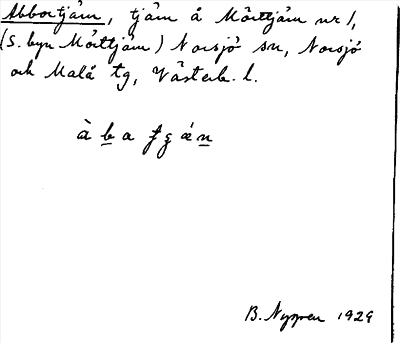 Abbortjärn, tjärn å Mörttjärn nr 1,
(S. byn Mörttjärn) Norsjö sn, Norsjö
och Malå tg, Västerb. l.
à b a ƒ g ä́ n
B. Nygren 1929